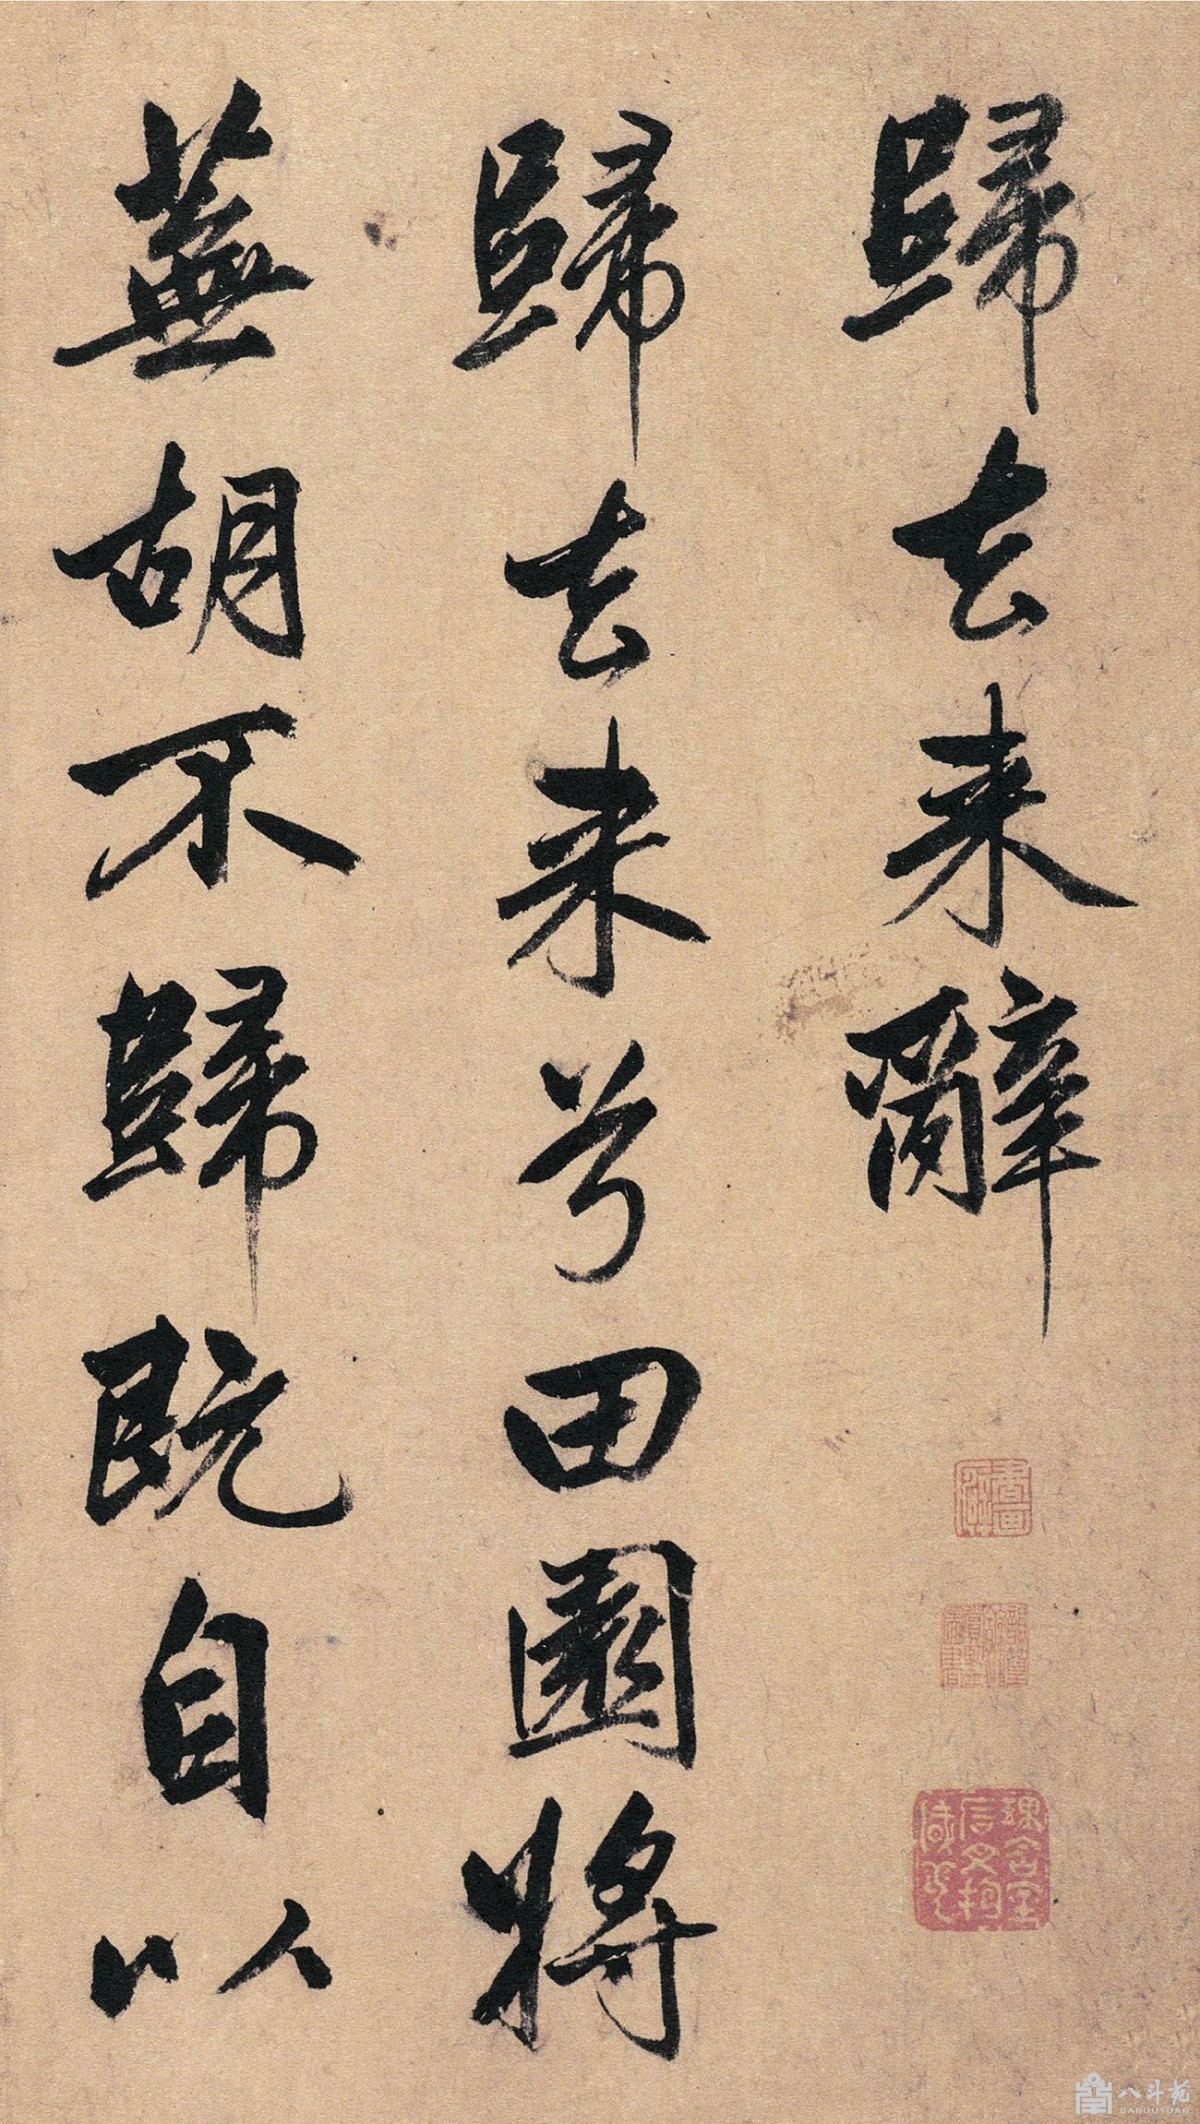 歸去来辭
歸去来兮田園將
蕪胡不歸既自以
八斗苑
BADOUYUAN